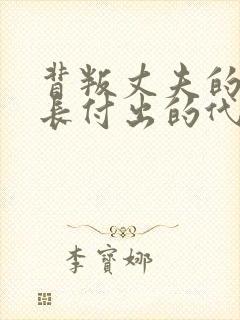 背叛丈夫的
长付出的代
李寶娜